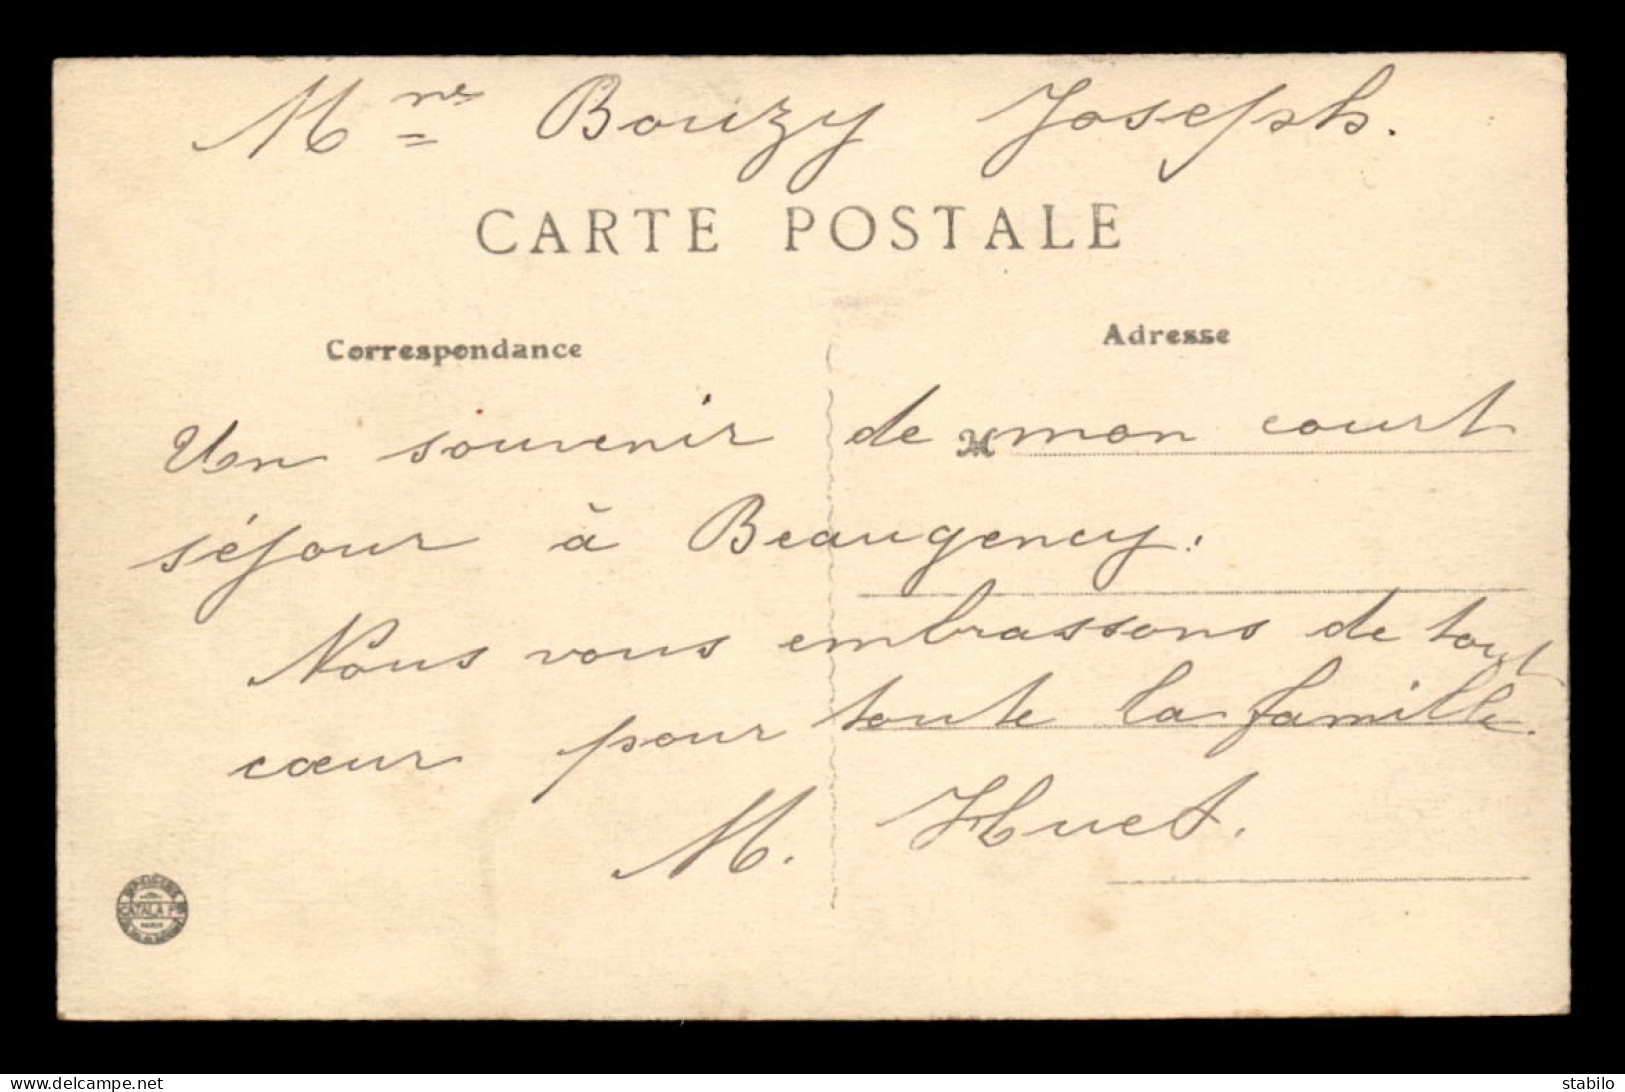 Mme Bouzy Joseph.
CARTE POSTALE
Correspondance
Adresse
Un souvenir de M mon court
séjour à Beaugency.
Nous vous embrassons de tout
cœur pour toute la famille.
M. Huet.
CATALA Fres
PARIS
delcampe.net
stabilo